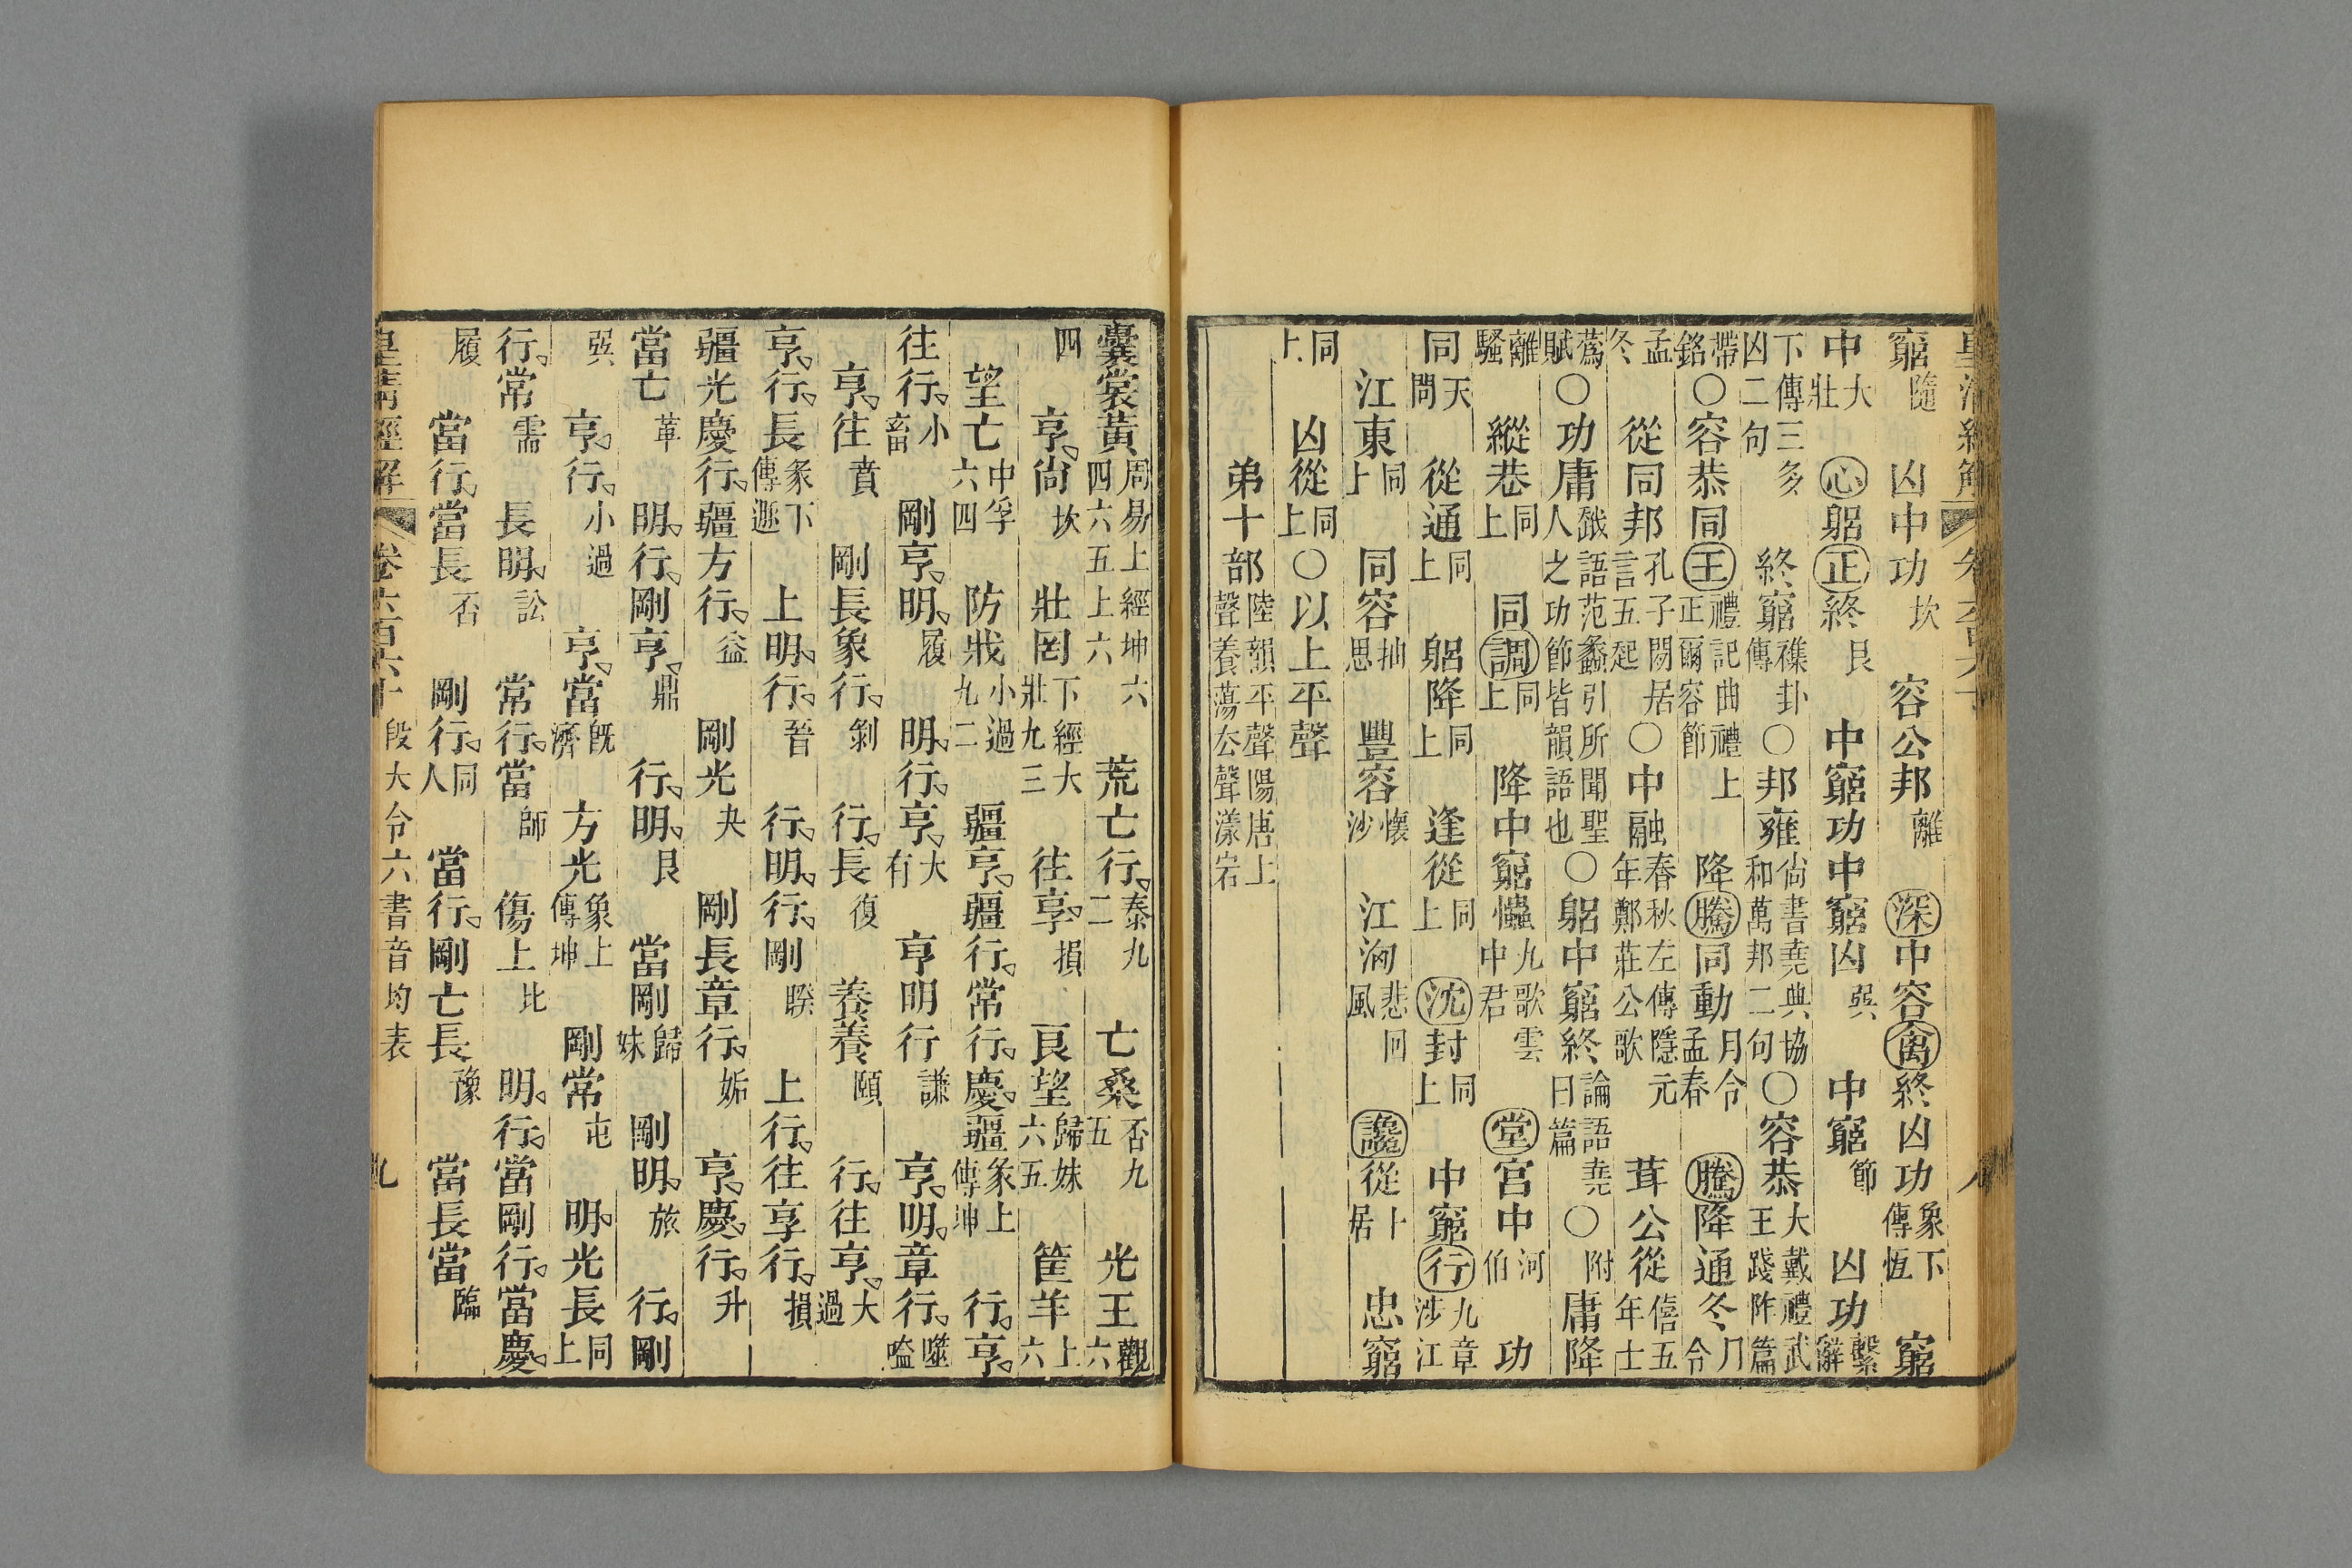 皇清經解 卷六百六十 八
窮隨 凶中功坎 容公邦離 深中容禽終凶功象下傳恆 窮
中大壯 心躬正終艮 中窮功中窮凶巽 中窮節 凶功繫辭
下傳三多凶二句 終窮襍卦傳○邦雍尚書堯典協和萬邦二句○容恭大戴禮武王踐阼篇
帶銘○容恭同王禮記曲禮上正爾容節 降騰同動月令孟春 騰降通冬月令
孟冬 從同邦孔子閒居言五起○中融春秋左傳隱元年鄭莊公歌 茸公從僖五年士
蒍賦○功庸國語范蠡引所聞聖人之功節皆韻語也○躬中窮終論語堯曰篇○附 庸降
離騷 縱巷同上 同調同上 降中窮𢥞九歌雲中君 堂宮中河伯 功
同天問 從通同上 躬降同上 逢從同上 沈封同上 中窮行九章涉江
江東同上 同容抽思 豐容懷沙 江洶悲回風 讒從卜居 忠窮
同上 凶從同上○以上平聲
弟十部陸韻平聲陽唐上聲養蕩去聲漾宕
囊裳黃周易上經坤六四六五上六 荒亡行泰九二 亡桑否九五 光王觀六
四 亨尚坎 壯罔下經大壯九三 往享損 良望歸妹六五 筐羊上六
望亡中孚六四 防戕小過九二 疆亨疆行常行慶疆彖上傳坤 行亨
往行小畜 剛亨明履 明行亨大有 亨明行謙 亨明章行噬嗑
亨往賁 剛長象行剝 行長復 養養頤 行往亨大過
亨行長彖下傳遯 上明行晉 行明行剛睽 上行往享行損
疆光慶行疆方行益 剛光夬 剛長章行姤 亨慶行升
當亡革 明行剛亨鼎 行明艮 當剛歸妹 剛明旅 行剛
巽 亨行小過 亨當既濟 方光象上傳坤 剛常屯 明光長同上
行常需 長明訟 常行當師 傷上比 明行當剛行當慶
履 當行當長否 剛行同人 當行剛亡長豫 當長當臨
皇清經解 卷六百六十 段大令六書音均表 九